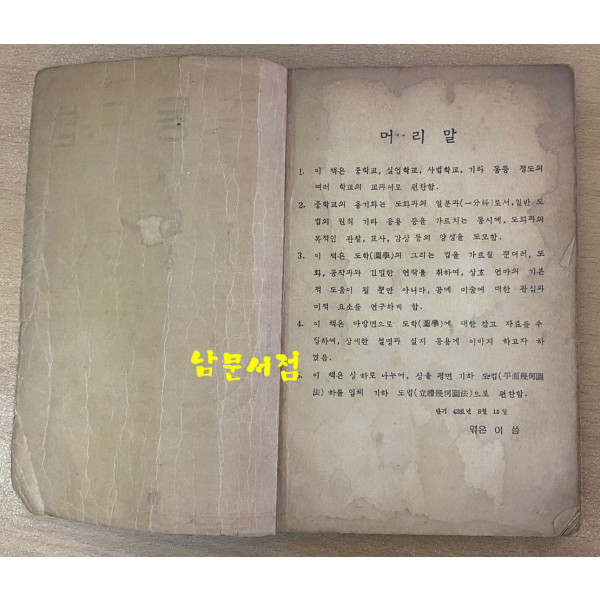 머리말
1. 이 책은 중학교, 실업학교, 사범학교, 기타 동등 정도의
여러 학교의 교과서로 편찬함.
2. 중학교의 용기화는 도화과의 일분과(一分科)로서, 일반 도
법의 원칙 기타 응용 등을 가르치는 동시에, 도화과의
목적인 관찰, 묘사, 감상 등의 양성을 도모함.
3. 이 책은 도학(圖學)의 그리는 법을 가르칠 뿐더러, 도
화, 공작과와 긴밀한 연락을 취하여, 상호 연마의 기본
적 도움이 될 뿐만 아니라, 공예 미술에 대한 관심과
미적 요소를 연구하게 함.
4. 이 책은 다방면으로 도학(圖學)에 대한 참고 자료를 수
집하여, 상세한 설명과 실지 응용에 이바지 하고자 하
였음.
이 책은 상 하로 나누어, 상을 평면 기하 도법(平面幾何圖
法) 하를 입체 기하 도법(立體幾何圖法)으로 편찬함.
단기 년 8월 15일
엮은 이 씀
남문서점